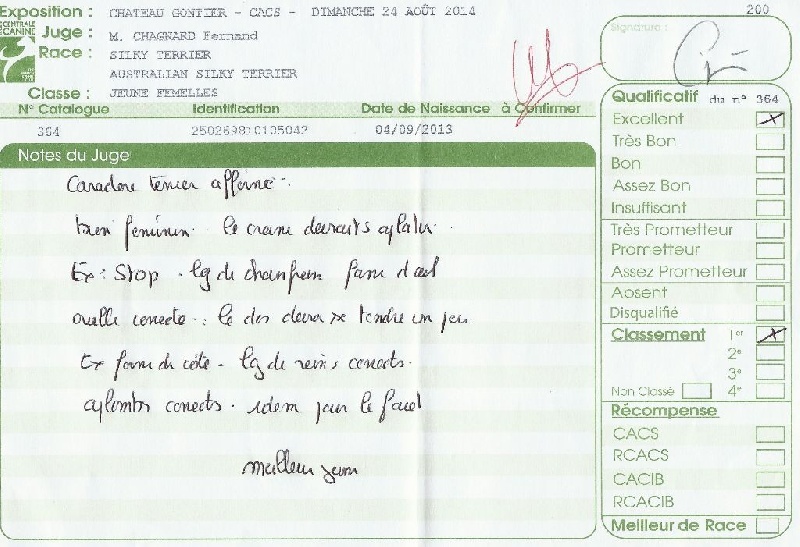 Exposition : CHATEAU GONTIER - CACS - DIMANCHE 24 AOÛT 2014
200
CENTRALE
CANINE
Juge : M. CHAGNARD Fernand
Race : SILKY TERRIER
AUSTRALIAN SILKY TERRIER
Classe : JEUNE FEMELLES
Signature :
N° Catalogue Identification Date de Naissance à Confirmer
364 04/09/2013
Notes du Juge
Caractère terrier affirmé.
bien féminin. le crane
Ex : Stop. lg de chanfrein forme d'oeil
oreille correcte. le dos devra se tendre un peu
Ex forme de côte - lg de reins corrects.
aplombs corrects. idem pour le fouet
meilleur jeune
Qualificatif du n° 364
Excellent X
Très Bon
Bon
Assez Bon
Insuffisant
Très Prometteur
Prometteur
Assez Prometteur
Absent
Disqualifié
Classement 1er X
2e
3e
Non Classé 4e
Récompense
CACS
RCACS
CACIB
RCACIB
Meilleur de Race